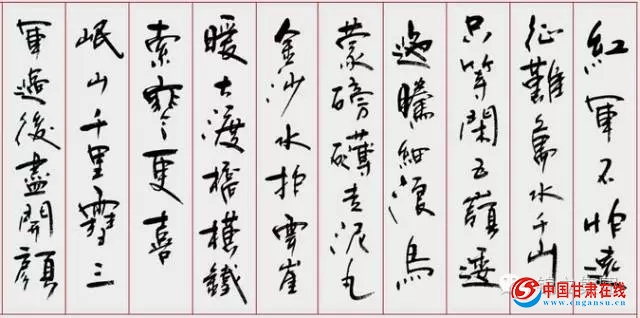 紅軍不怕遠
征難萬水千山
只等閑五嶺逶
迤騰細浪烏
蒙磅礴走泥丸
金沙水拍雲崖
暖大渡橋橫鐵
索寒更喜
岷山千里雪三
軍過後盡開顏
中国甘肃在线
www.cngansu.cn